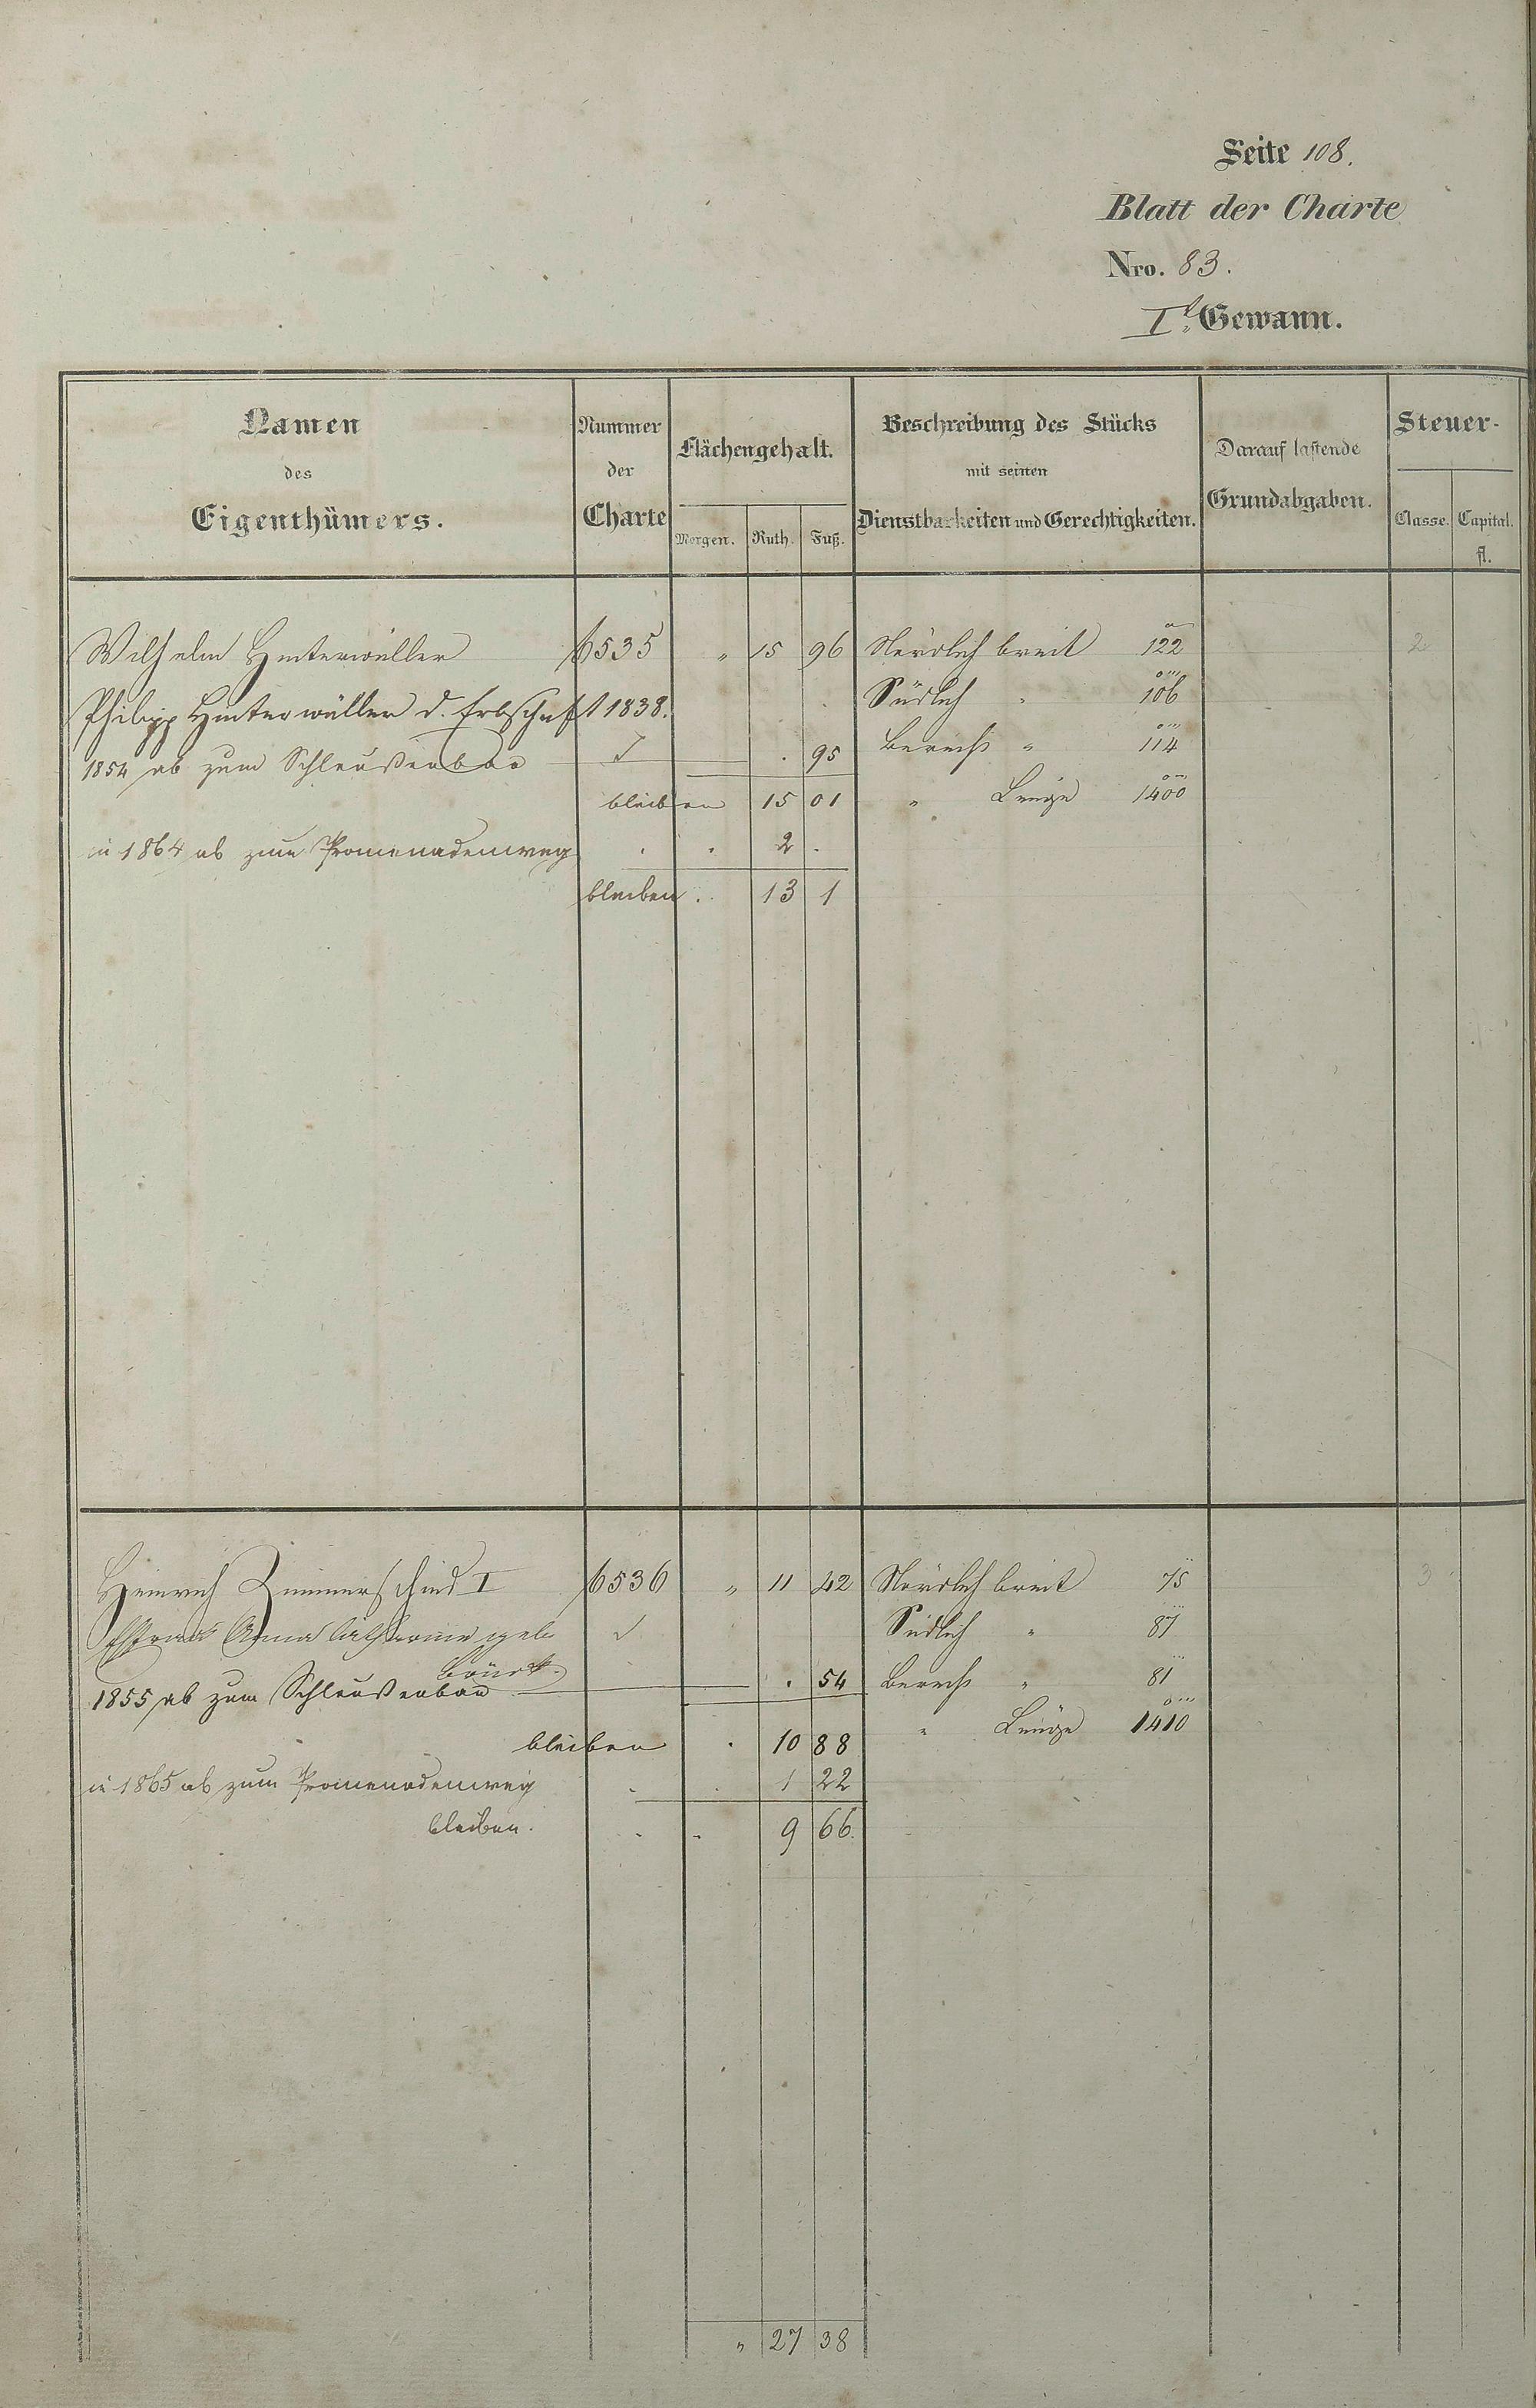 Seite 108.
Blatt der Charte
Nro. 83.
I. Gewann.
Namen des Eigenthümers.
Nummer der Charte
Flächengehalt.
Morgen. Ruth. Fuß.
Beschreibung des Stücks mit seinen Dienstbarkeiten und Gerechtigkeiten.
Darauf lastende Grundabgaben.
Steuer-
Classe. Capital. fl.
Wilhelm Hinterwäller 6535 " 15 96 Nördlich breit 122 2
Philipp Hinterwäller d. Erbschaft 1838. Südlich " 106
1854 ab zum Schleußenbau . 95 Berechs " 114
bleiben 15 01 " Länge 1400
in 1864 ab zum Promenadenweg . . 2 .
bleiben . . 13 1
Heinrich Zimmerschied I 6536 " 11 42 Nördlich breit 75 3
Ehefrau Anna Catharine geb. Südlich " 87
1855 ab zum Schleußenbau . 54 Berechs " 81
bleiben . 10 88 " Länge 1410
in 1865 ab zum Promenadenweg . . 1 22
bleiben. . . 9 66.
" 27 38